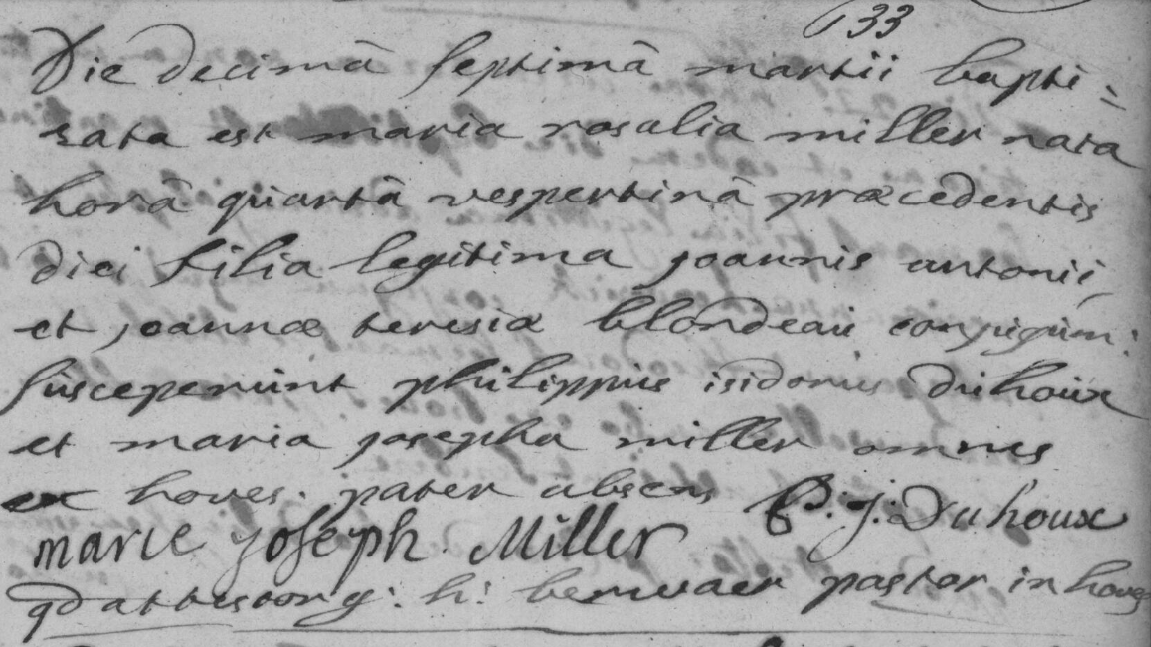 133
Die decimâ septimâ martii bapti=
zata est maria rosalia miller nata
horâ quartâ vespertinâ præcedentis
diei filia legitima joannis antonii
et joannæ teresiæ blondeau conjugum:
susceperunt philippus isidorus duhoux
et maria josepha miller omnes
ex hoves. pater absens P: j: Duhoux
marie joseph Miller
qd attestor g: h: berwaer pastor in hoves